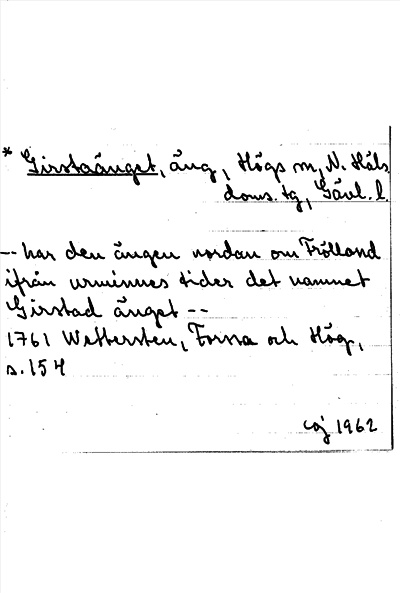 * Girstaänget, äng, Högs sn, N. Häls.
doms. tg, Gävl. l.
-- har den ängen nordan om Frölland
ifrån urminnes tider det namnet
Girstad änget --
1761 Wettersten, Forssa och Hög,
s. 154
CGJ 1962